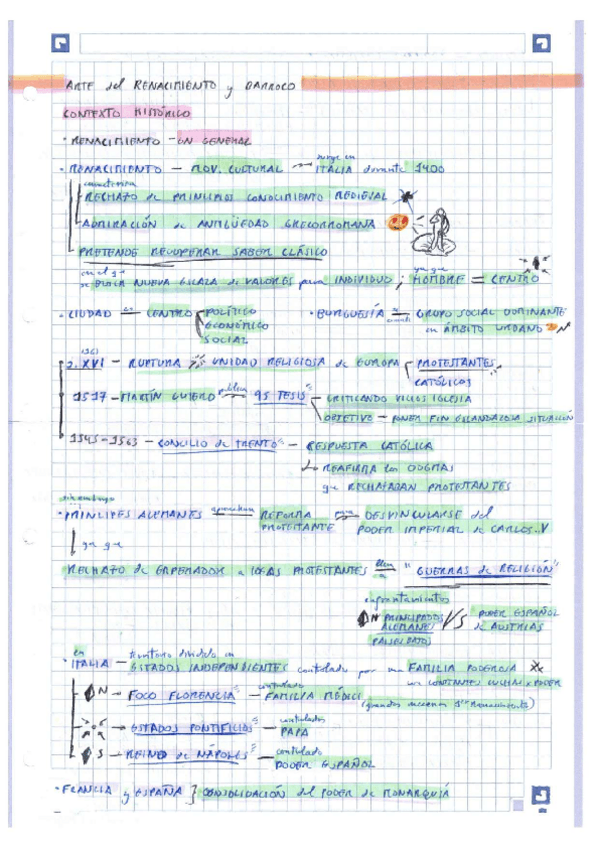 ARTE del RENACIMIENTO y BARROCO
CONTEXTO HISTÓRICO
· RENACIMIENTO - EN GENERAL
· RENACIMIENTO — MOV. CULTURAL surge en ITALIA durante 1400
caracteriza
RECHAZO de PRINCIPIOS CONOCIMIENTO MEDIEVAL
ADMIRACIÓN de ANTIGÜEDAD GRECORROMANA
PRETENDE RECUPERAR SABER CLÁSICO
en el que ya que
se BUSCA NUEVA ESCALA de VALORES para INDIVIDUO ; HOMBRE = CENTRO
· CIUDAD es CENTRO POLÍTICO
ECONÓMICO
SOCIAL
· BURGUESÍA se GRUPO SOCIAL DOMINANTE
en ÁMBITO URBANO
S. XVI — RUPTURA UNIDAD RELIGIOSA de EUROPA PROTESTANTES
CATÓLICOS
1517 - MARTÍN LUTERO publica 95 TESIS — CRITICANDO VICIOS IGLESIA
OBJETIVO — PONER FIN ESCANDALOSA SITUACIÓN
1545-1563 — CONCILIO de TRENTO — RESPUESTA CATÓLICA
↳ REAFIRMA los DOGMAS
que RECHAZABAN PROTESTANTES
sin embargo
· PRÍNCIPES ALEMANES aprovecharon REFORMA PROTESTANTE para DESVINCULARSE del
PODER IMPERIAL de CARLOS V
ya que
RECHAZO de EMPERADOR a IDEAS PROTESTANTES lleva a "GUERRAS de RELIGIÓN"
enfrentamientos
N PRINCIPADOS ALEMANES VS PODER ESPAÑOL
de AUSTRIAS
en
· ITALIA — territorio dividido en ESTADOS INDEPENDIENTES controlado por una FAMILIA PODEROSA
con CONSTANTES LUCHAS x PODER
N → FOCO FLORENCIA — controlado FAMILIA MÉDICI (grandes mecenas 1er Renacimiento)
→ ESTADOS PONTIFICIOS — controlados PAPA
S → REINO de NÁPOLES — controlado PODER ESPAÑOL
· FRANCIA y ESPAÑA } CONSOLIDACIÓN del PODER de MONARQUÍA